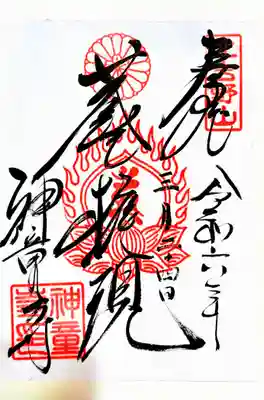 奉拝
令和六年
三月二十四日
蔵王権現
神童寺
神童寺印